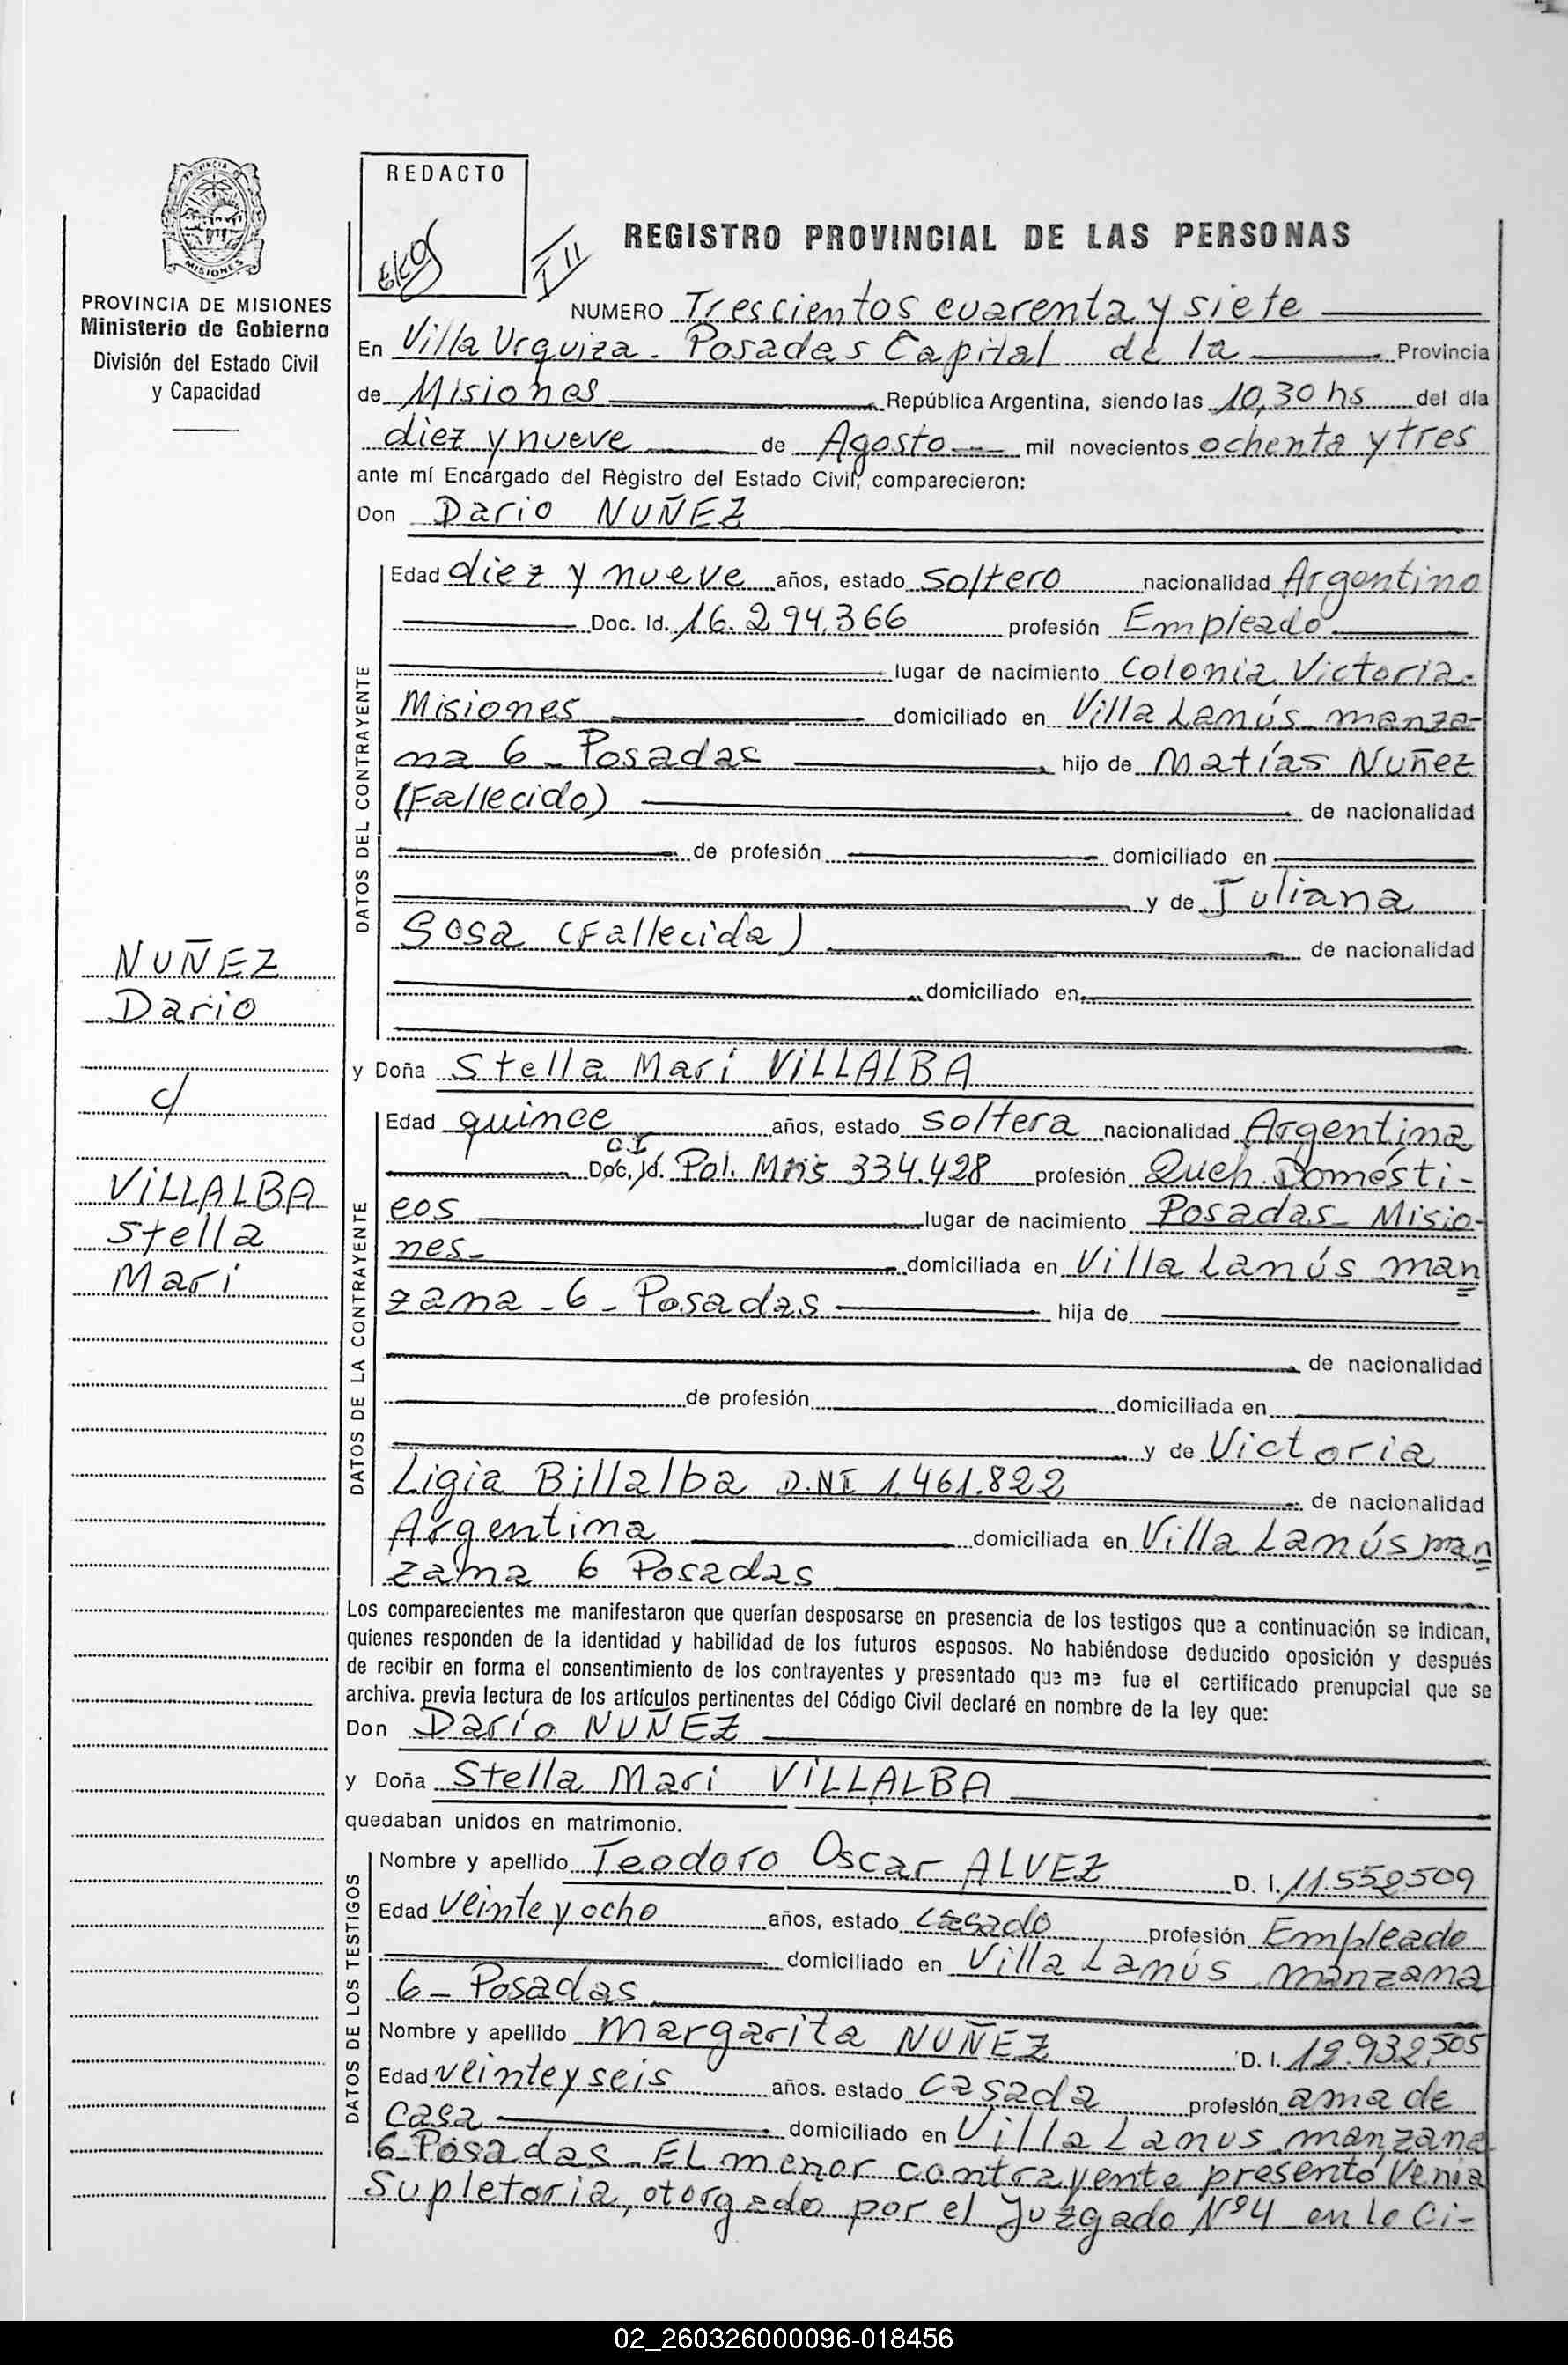 REDACTO
PROVINCIA DE MISIONES
Ministerio de Gobierno
División del Estado Civil
y Capacidad
NUÑEZ
Dario
c/
VILLALBA
Stella
Mari
REGISTRO PROVINCIAL DE LAS PERSONAS
NUMERO Trescientos cuarenta y siete
En Villa Urquiza - Posadas Capital de la Provincia
de Misiones República Argentina, siendo las 10,30 hs del día
diez y nueve de Agosto mil novecientos ochenta y tres
ante mí Encargado del Registro del Estado Civil, comparecieron:
Don Dario NUÑEZ
DATOS DEL CONTRAYENTE
Edad diez y nueve años, estado soltero nacionalidad Argentino
Doc. Id. 16.294.366 profesión Empleado
lugar de nacimiento Colonia Victoria-
Misiones domiciliado en Villa Lanús manza-
na 6 - Posadas hijo de Matías Nuñez
(Fallecido) de nacionalidad
de profesión domiciliado en
y de Juliana
Sosa (Fallecida) de nacionalidad
domiciliado en
y Doña Stella Mari VILLALBA
DATOS DE LA CONTRAYENTE
Edad quince años, estado soltera nacionalidad Argentina
C I
Doc. Id. Pol. Mnis 334.428 profesión Queh. Domésti-
cos lugar de nacimiento Posadas - Misio-
nes - domiciliada en Villa Lanús man
zana - 6 - Posadas hija de
de nacionalidad
de profesión domiciliada en
y de Victoria
Ligia Billalba D.NI 1.461.822 de nacionalidad
Argentina domiciliada en Villa Lanús man
zana 6 Posadas
Los comparecientes me manifestaron que querían desposarse en presencia de los testigos que a continuación se indican,
quienes responden de la identidad y habilidad de los futuros esposos. No habiéndose deducido oposición y después
de recibir en forma el consentimiento de los contrayentes y presentado que me fue el certificado prenupcial que se
archiva. previa lectura de los artículos pertinentes del Código Civil declaré en nombre de la ley que:
Don Darío NUÑEZ
y Doña Stella Mari VILLALBA
quedaban unidos en matrimonio.
DATOS DE LOS TESTIGOS
Nombre y apellido Teodoro Oscar ALVEZ D. I. 11.552.509
Edad veinte y ocho años, estado casado profesión Empleado
domiciliado en Villa Lanús manzana
6 - Posadas
Nombre y apellido Margarita NUÑEZ D. I. 12.932.505
Edad veinte y seis años. estado casada profesión ama de
casa domiciliado en Villa Lanus manzana
6 Posadas - EL menor contrayente presentó Venia
Supletoria, otorgado por el Juzgado Nº4 en lo Ci-
02_260326000096-018456